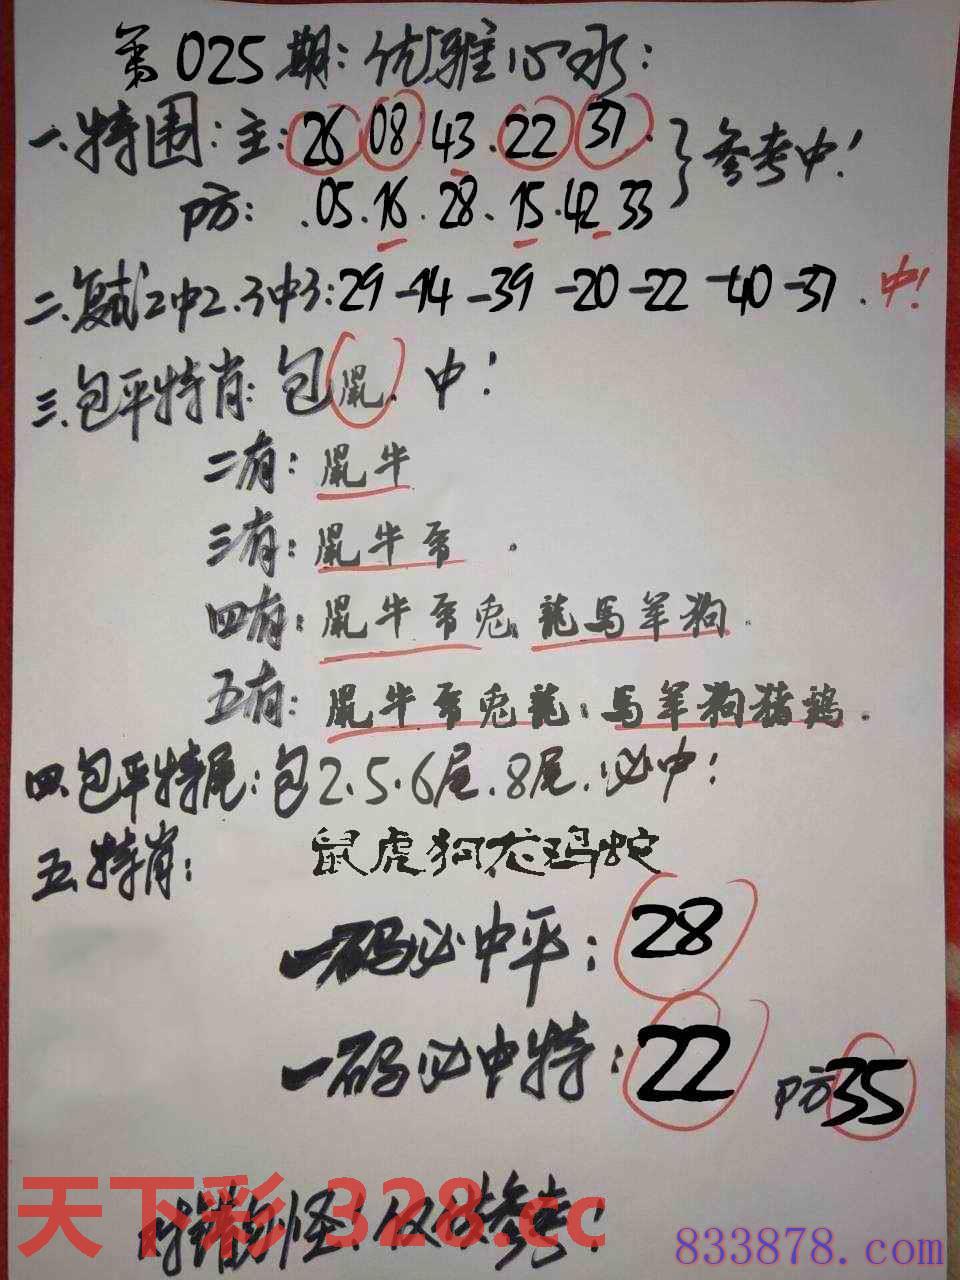 第025期:优雅心水:
一.特围:主:26 08 43.22 37. }参考中!
防:.05.16.28.15.42 33
二.复试2中2.3中3:29-14-39-20-22-40-37.中!
三.包平特肖:包鼠.中!
二有:鼠牛
三有:鼠牛虎.
四有:鼠牛虎兔.龍馬羊狗.
五有:鼠牛虎兔龍:馬羊狗猪鷄.
四.包平特尾:包2.5.6尾.8尾.必中!
五.特肖:鼠虎狗龙鸡蛇
一码必中平:28
一码必中特:22 防35
对错勿怪!仅供参考!
天下彩 328.cc
833878.com